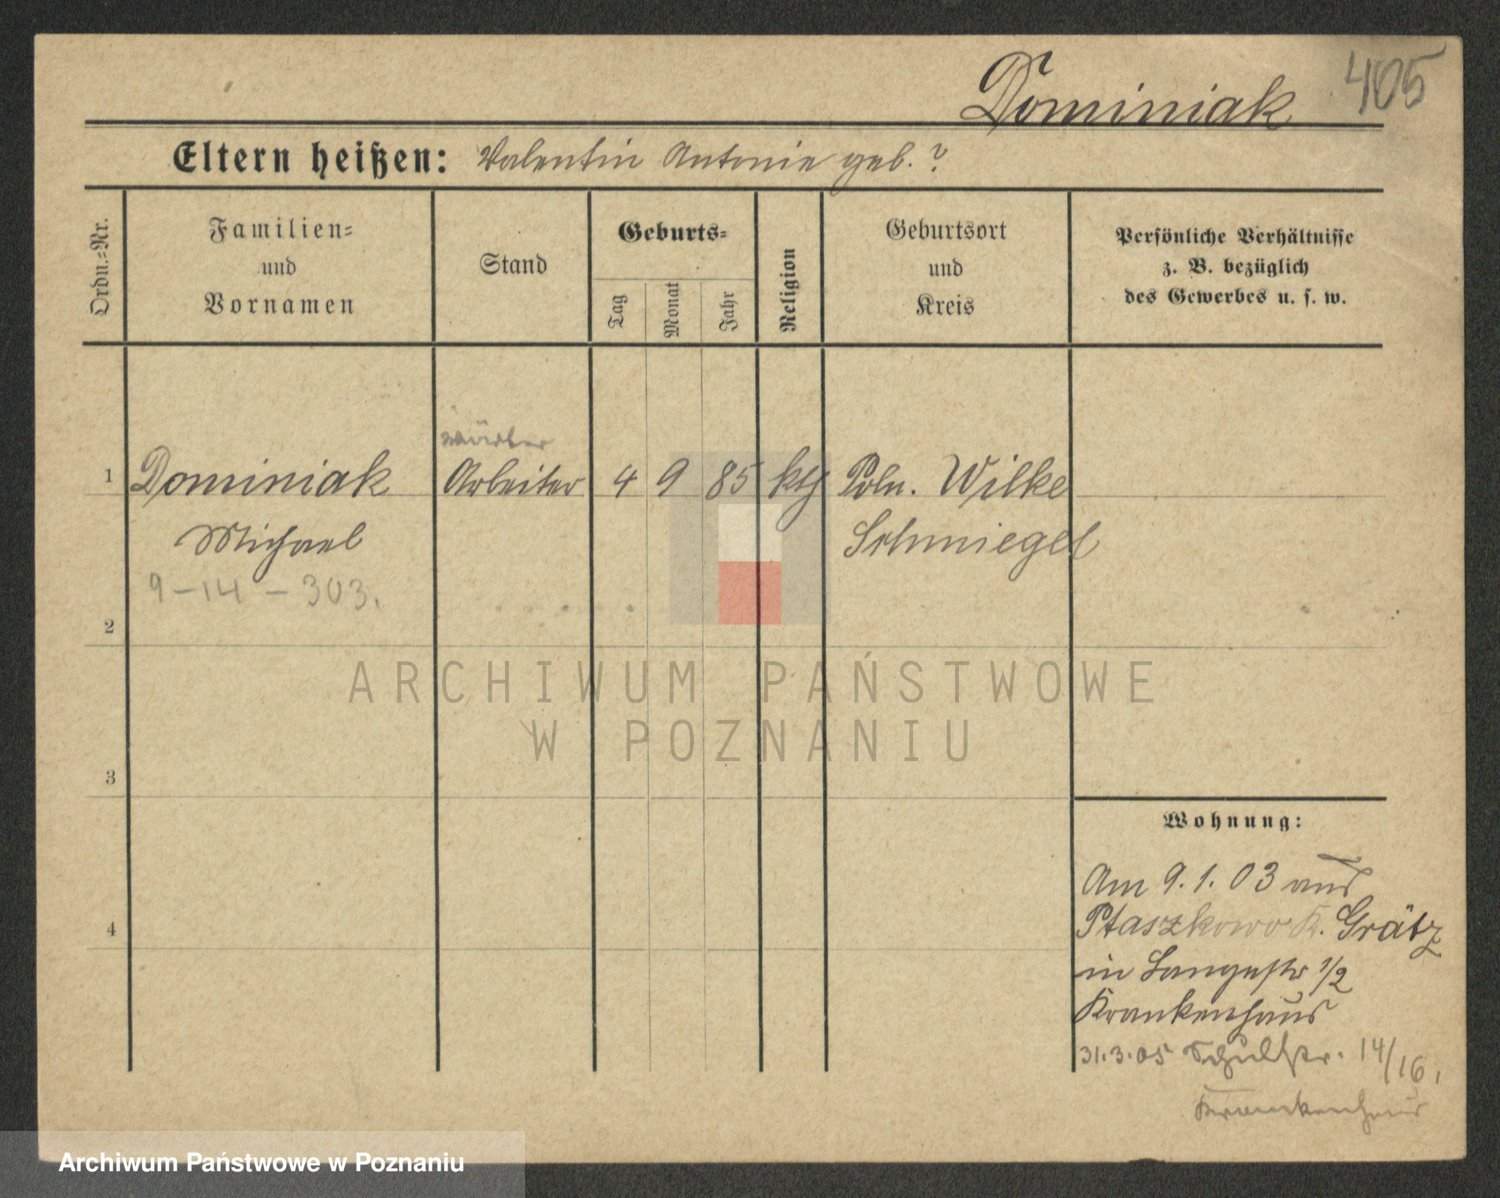 Dominiak 405
Eltern heißen: Valentin Antonie geb. ?
Ordn.-Nr.
Familien-
und
Vornamen
Stand
Geburts-
Tag
Monat
Jahr
Religion
Geburtsort
und
Kreis
Persönliche Verhältnisse
z. B. bezüglich
des Gewerbes u. s. w.
1 Dominiak Arbeiter 4 9 85 kth Poln. Wilke
Michael Schmiegel
9-14-303.
2
3
4
Wohnung:
Am 9.1.03 aus
Ptaszkowo K. Grätz
in Langestr 1/2
Krankenhaus
31.3.05 Schulstr. 14/16,
Krankenhaus
ARCHIWUM PAŃSTWOWE
W POZNANIU
Archiwum Państwowe w Poznaniu